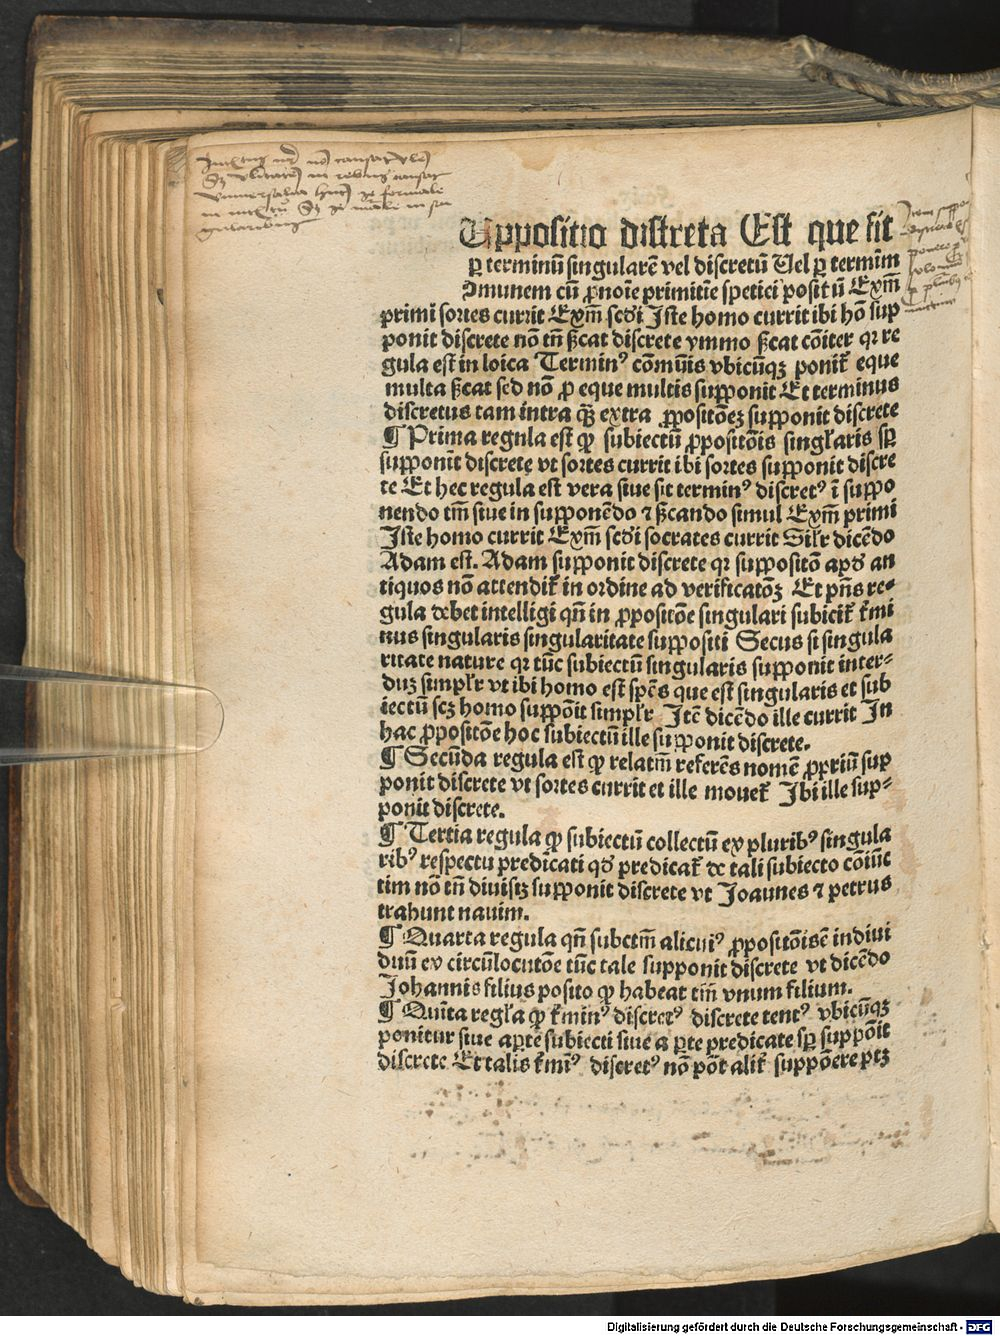 Uppositio discreta Est que fit
ꝑ terminū singularē vel discretū Uel ꝑ terminū
ꝯmunem cū ꝓnoīe primitīe spetiei positū Exm̄
primi sortes currit Exm̄ scd̄i Iste homo currit ibi hō sup
ponit discrete nō tn̄ ſc̄at discrete ymmo ſc̄at cōiter qꝛ re
gula est in loica Terminꝰ cōmūis vbicūqꝫ ponit᷑ eque
multa ſc̄at sed nō ꝓ eque multis supponit Et terminus
discretus tam intra qꝫ extra ꝓpositōeꝫ supponit discrete
¶ Prima regula est ꝙ subiectū ꝓpositōis singl'aris sꝑ
supponit discrete vt sortes currit ibi sortes supponit discre
te Et hec regula est vera siue sit terminꝰ discretꝰ ī suppo
nendo tm̄ siue in supponēdo ⁊ ſc̄ando simul Exm̄ primi
Iste homo currit Exm̄ scd̄i socrates currit Silr dicēdo
Adam est. Adam supponit discrete qꝛ suppositō apd̄ an
tiquos nō attendit᷑ in ordine ad verificatōꝫ Et pn̄s re⸗
gula debet intelligi qn̄ in ꝓpositōe singulari subicit᷑ t᷑mi
nus singularis singularitate suppositi Secus si singula
ritate nature qꝛ tūc subiectū singularis supponit inter⸗
duꝫ simpl'r vt ibi homo est spēs que est singularis et sub
iectū scꝫ homo suppōit simpl'r Itē dicēdo ille currit In
hac ꝓpositōe hoc subiectū ille supponit discrete.
¶ Secūda regula est ꝙ relatm̄ referēs nomē ꝓpriū sup
ponit discrete vt sortes currit et ille mouet᷑ Ibi ille sup⸗
ponit discrete.
¶ Tertia regula ꝙ subiectū collectū ex pluribꝰ singula
ribꝰ respectu predicati qd̄ predicat᷑ de tali subiecto cōiūc
tim nō tn̄ diuisiꝫ supponit discrete vt Ioannes ⁊ petrus
trahunt nauim.
¶ Quarta regula qn̄ subctm̄ alicuiꝰ ꝓpositōis ē indiui
duū ex circūlocutōe tūc tale supponit discrete vt dicēdo
Johannis filius posito ꝙ habeat tm̄ vnum filium.
¶ Quīta regl'a ꝙ t᷑minꝰ discretꝰ discrete tentꝰ vbicūqꝫ
ponitur siue aꝑte subiecti siue a ꝑte predicate sꝑ suppōit
discrete Et talis t᷑mīꝰ discretꝰ nō pōt alit᷑ suppōere ptꝫ
Digitalisierung gefördert durch die Deutsche Forschungsgemeinschaft - DFG